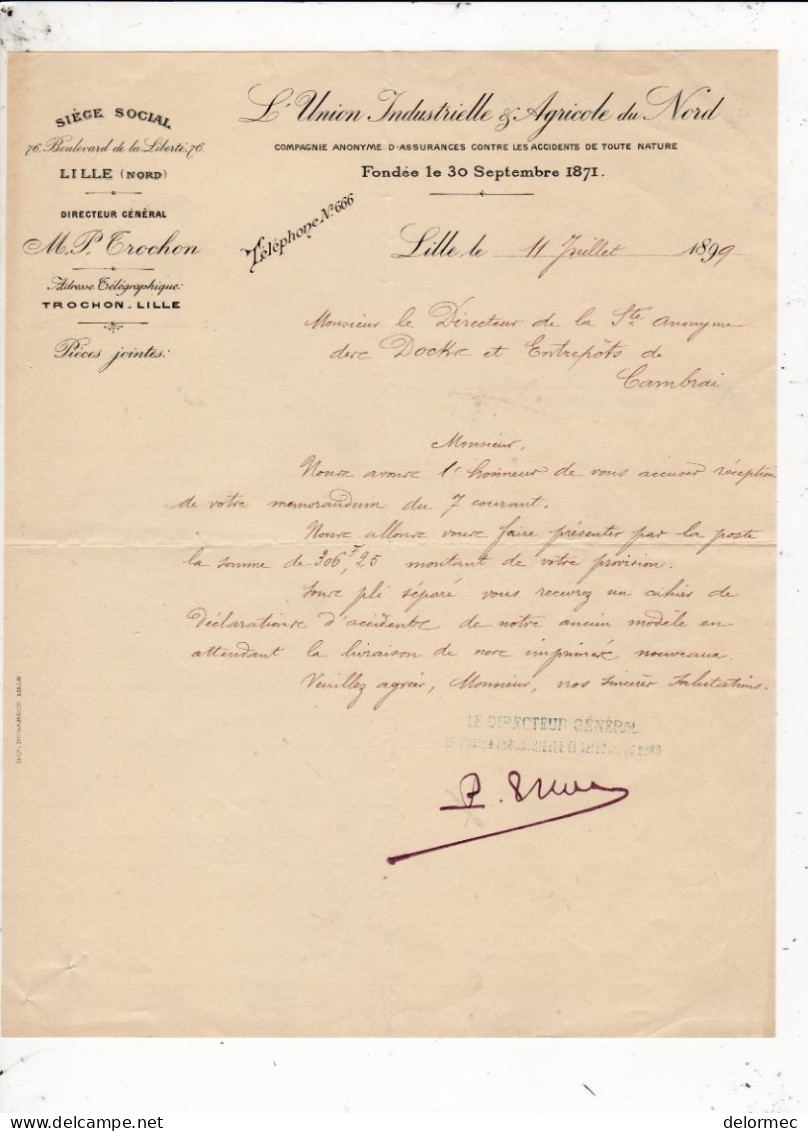 SIÈGE SOCIAL
76, Boulevard de la Liberté, 76.
LILLE (NORD)
DIRECTEUR GÉNÉRAL
M. P. Trochon
Adresse Télégraphique:
TROCHON - LILLE
Pièces jointes:
L'Union Industrielle & Agricole du Nord
COMPAGNIE ANONYME D'ASSURANCES CONTRE LES ACCIDENTS DE TOUTE NATURE
Fondée le 30 Septembre 1871.
Téléphone No 666
Lille, le 11 Juillet 1899
Monsieur le Directeur de la Sté anonyme
des Docks et Entrepôts de
Cambrai
Monsieur,
Nous avons l'honneur de vous accuser réception
de votre memorandum du 7 courant.
Nous allons vous faire présenter par la poste
la somme de 306F,25 montant de votre provision.
Sous pli séparé vous recevrez un cahier de
Déclarations d'accidents de notre ancien modèle en
attendant la livraison de nos imprimés nouveaux.
Veuillez agréer, Monsieur, nos sincères salutations.
LE DIRECTEUR GÉNÉRAL
IMP. DUBAREUX LILLE
delcampe.net
delormec